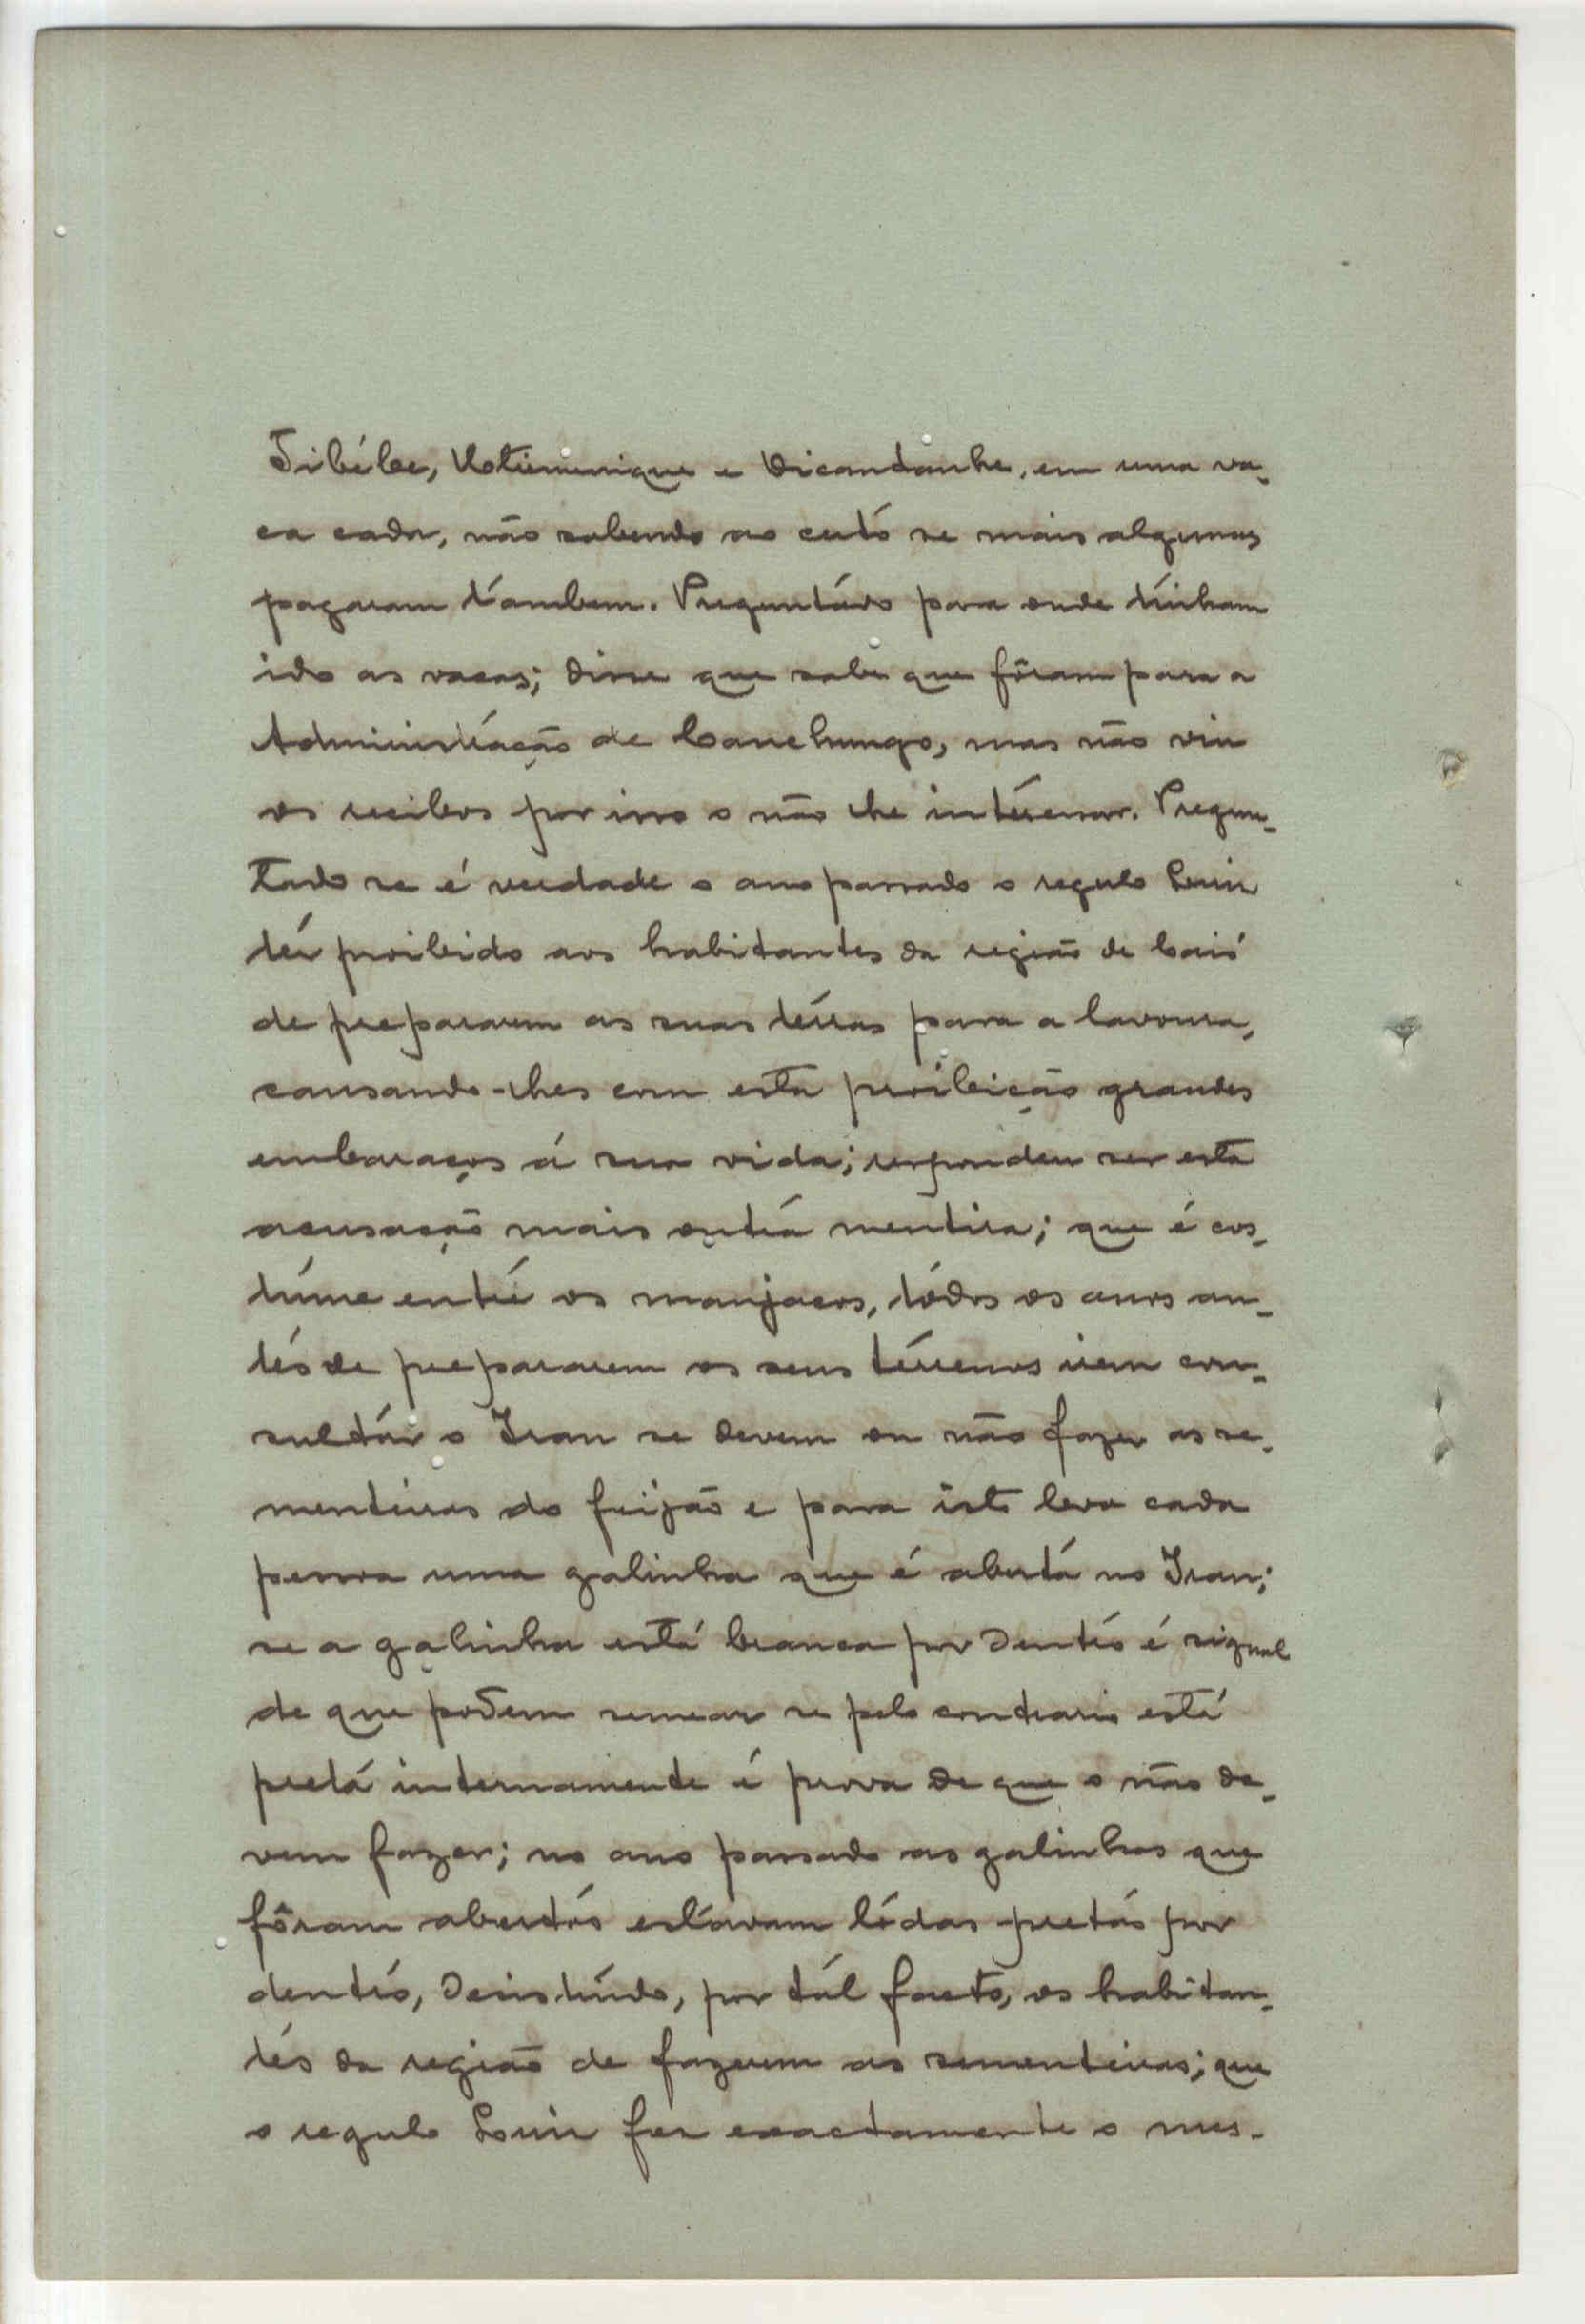 Tibébe, Utiminique e Dicandanhe, em uma va-
ca cada, não sabendo ao certo se mais algumas
pagaram tambem. Preguntado para onde tinham
ido as vacas; disse que sabe que fôram para a
Administração de Canchungo, mas não viu
os recibos por isso o não lhe interessar. Pregun-
tado se é verdade o ano passado o regulo Luiz
ter proibido aos habitantes da região de Caió
de prepararem as suas terras para a lavoura,
causando-lhes com esta proibição grandes
embaraços á sua vida; respondeu ser esta
acusação mais outra mentira; que é cos-
tume entre os manjacos, todos os anos an-
tes de prepararem os seus terrenos irem con-
sultar o Iran se devem ou não fazer as se-
menteiras do feijão e para isto leva cada
pessoa uma galinha que é aberta no Iran;
se a galinha está branca por dentro é signal
de que podem semear se pelo contrario está
preta internamente é prova de que o não de-
vem fazer; no ano passado as galinhas que
fôram abertas estavam todas pretas por
dentro, desistindo, por tal facto, os habitan-
tes da região de fazerem as sementeiras; que
o regulo Luiz fez exactamente o mes-